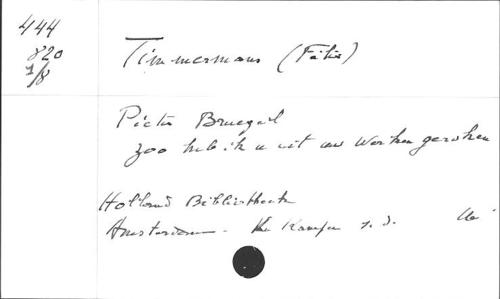 444
820
1/8
Timmermans (Felix)
Pieter Bruegel
zoo heb ik u uit uw werken geroken
Holland Bibliotheek
Amsterdam - Van Kampen s. d.